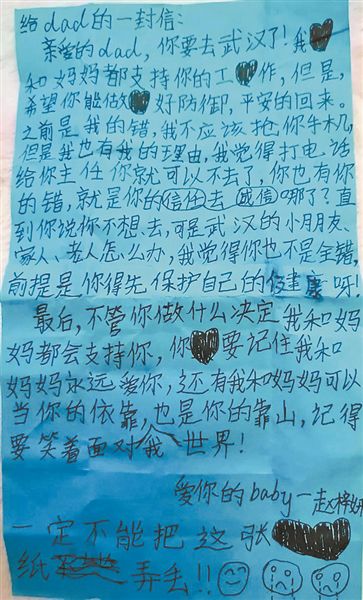 给dad的一封信:
亲爱的dad,你要去武汉了!我
和妈妈都支持你的工作,但是,
希望你能做好防御,平安的回来。
之前是我的错,我不应该抢你手机,
但是我也有我的理由,我觉得打电话
给你主任你就可以不去了,你也有你
的错,就是你的信任去 诚信 哪了?直
到你说你不想去,可是武汉的小朋友、
家人、老人怎么办,我觉得你也不是全错,
前提是你得先保护自己的健康呀!
最后,不管你做什么决定我和妈
妈都会支持你,你要记住我和
妈妈永远爱你,还有我和妈妈可以
当你的依靠,也是你的靠山,记得
要笑着面对我世界!
爱你的baby—赵梓妍
一定不能把这张
纸弄丢!!